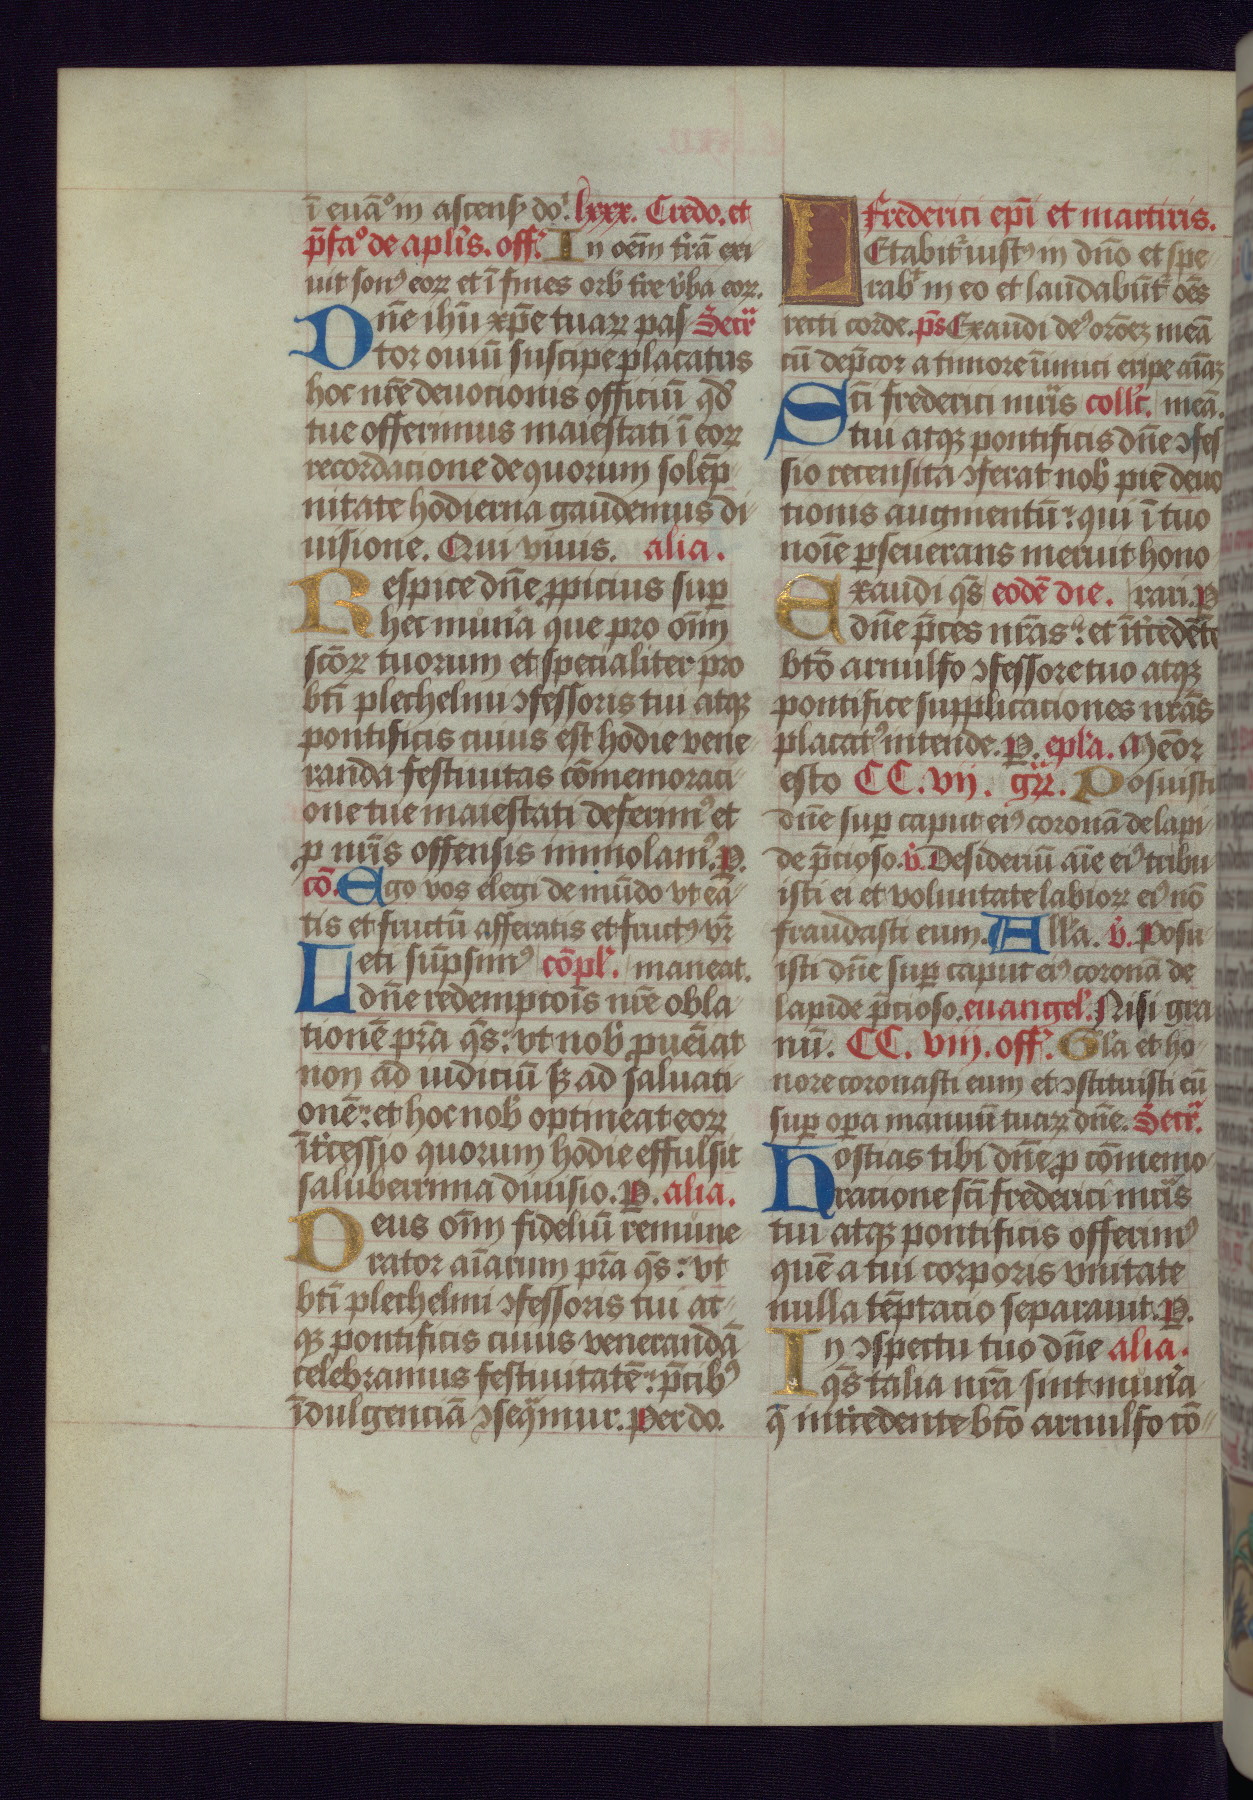 ī euāº in ascensꝫ doⁱ. lxxx. Credo. et
p̄faº de aplīs. off. In oēm t̄rā exi
uit sonꝰ eoꝝ et ī fines orbꝭ t̄re v̄ba eoꝝ.
Dn̄e ih̄u xp̄e tuaꝝ pas Secr̄
tor ouiū suscipe placatus
hoc nr̄e deuotionis officiū qd̄
tue offerimus maiestati ī eoꝝ
recordacione de quorum solēp
nitate hodierna gaudemus di
uisione. Qui viuis. alia.
Respice dn̄e ꝓpicius suꝑ
hec mun̄a que pro om̄
scōꝝ tuorum et specialiter pro
btī plechelmi ↄfessoris tui atqꝫ
pontificis cuius est hodie vene
randa festiuitas cōmemoraci
one tue maiestati deferimꝰ et
ꝓ nr̄is offensis immolamꝰ. P.
cō. Ego vos elegi de mūdo vt eā
tis et fructū afferatis et fructꝰ vr̄
Leti sūpsimꝰ cōpl. maneat.
dn̄e redemptoīs nr̄e obla
tionē pr̄a qs̄: vt nobꝭ ꝓuēiat
non ad iudiciū sꝫ ad saluati
onē: et hoc nobꝭ optineat eoꝝ
īt̄cessio quorum hodie effulsit
saluberrima diuisio. P. alia.
Deus om̄ fideliū remune
rator aīarum pr̄a qs̄: vt
btī plechelmi ↄfessoris tui at
qꝫ pontificis cuius venerandā
celebramus festiuitatē: p̄cibꝰ
īdulgenciā ↄseqmur. Per do.
Frederici ep̄i et martiris.
Letabit̄ iustꝰ in dn̄o et spe
rabꝭ in eo et laudabūt̄ oēs
recti corde. ps̄ Exaudi deꝰ orōeꝫ meā
cū dep̄cor a timore inimici eripe aīaꝫ
Scī frederici mr̄is coll̄c. meā.
tui atqꝫ pontificis dn̄e ↄfes
sio recensita ↄferat nobꝭ pie deuo
tionis augmentū: qui ī tuo
noīe ꝑseuerans meruit hono
Exaudi qs̄ eodē die. rari. P
dn̄e p̄ces nr̄as: et īt̄cedēte
btō arnulfo ↄfessore tuo atqꝫ
pontifice supplicaciones nr̄as
placatꝰ intende. P. epl̄a. Meōr
esto CC. vij. gr̄. Posuisti
dn̄e suꝑ caput eiꝰ coronā de lapi
de p̄cioso. v̄. Desideriū aīe eiꝰ tribu
isti ei et voluntate labioꝝ eiꝰ nō
fraudasti eum. All̄a. v̄. Posu
isti dn̄e suꝑ caput eiꝰ coronā de
lapide p̄cioso. euangel̄. Nisi gra
nū. CC. viij. off. Glā et ho
nore coronasti eum et ↄstituisti eū
suꝑ oꝑa manuū tuaꝝ dn̄e. Secr̄.
Hostias tibi dn̄e ꝓ cōmemo
racione scī frederici mr̄is
tui atqꝫ pontificis offerimꝰ
quē a tui corporis vnitate
nulla tēptacio separauit. P.
In ↄspectu tuo dn̄e alia.
qs̄ talia nr̄a sint mun̄a
q̄ int̄cedente btō arnulfo cō